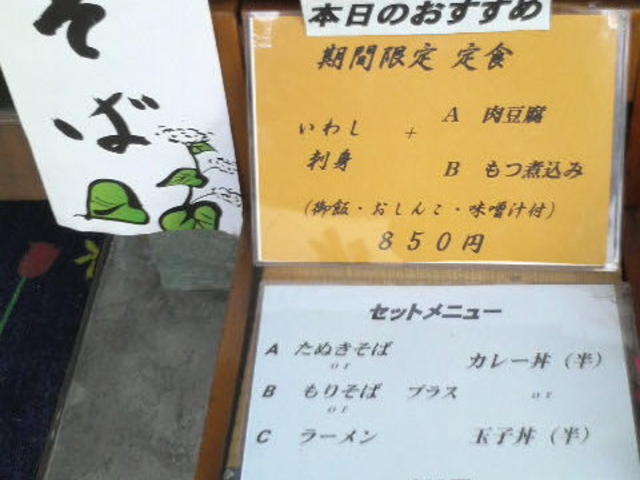 そば
本日のおすすめ
期間限定 定食
いわし 刺身 + A 肉豆腐
B もつ煮込み
(御飯・おしんこ・味噌汁付)
850円
セットメニュー
A たぬきそば カレー丼(半)
or
B もりそば プラス or
or
C ラーメン 玉子丼(半)